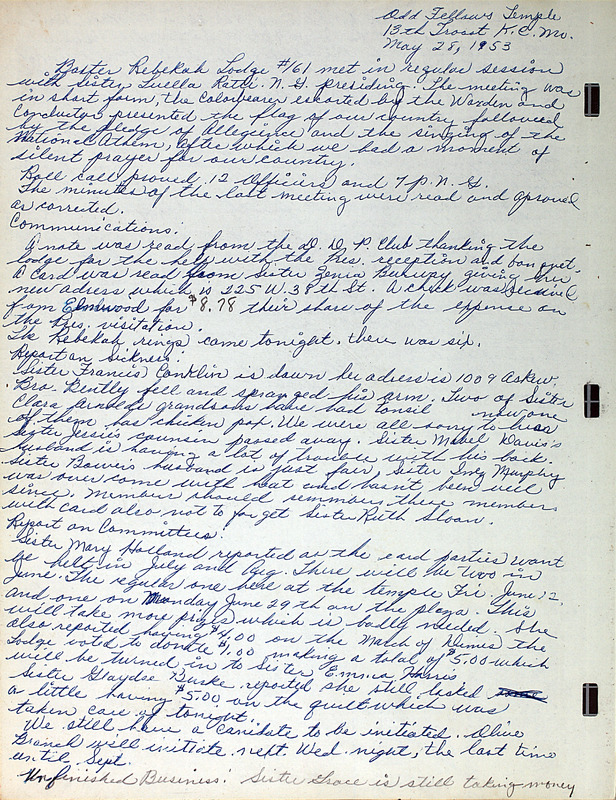 Odd Fellows Temple
13th Troost K.C. Mo.
May 28, 1953
Baxter Rebekah Lodge #161 met in regular session
with Sister Luella Ratel. N.G. presiding. The meeting was
in short form, the Colorbearer escorted by the Warden and
Conductor presented the flag of our country followed
by the pledge of Allegience and the singing of the
National Athem, after which we had a moment of
silent prayer for our country.
Roll call proved 12 Officers and 7 P.N.G.
The minutes of the last meeting were read and aproved
as corrected.
Communications.
A note was read from the D. D. P. Club thanking the
lodge for the help with the Pres. reception and banquet.
A card was read from Sister Zenia giving her
new adress which is 225 W. 38th St. A check was received
from Elmwood for $8.78 their share of the expense on
the Pres. visitation.
The Rebekah rings came tonight, there was six.
Report on Sickness:
Sister Francis Conklin is down her adress is 1009 Askew.
Bro. Bently fell and sprayged his arm. Two of Sister
Clara Arnolds grandsons have had tonsil now one
of them has chicken pox. We were all sorry to hear
Sister Jesies counsin passed away. Sister Mabel Davis's
husband is having a lot of trouble with his back.
Sister Bowers husband is just fair, Sister Inez Murphy
was over come with heat and hasn't been well
since. Members should remember these members
with card also not to forget Sister Ruth Sloan.
Report on Committees:
Sister Mary Holland reported as the card parties wont
be held in July and Aug. There will be two in
June. The regular one here at the temple Fri. June 12,
and one on Monday June 29th on the plaza. This
will take more prizes which is badly needed. She
also reported having $4.00 on the March of Dimes the
Lodge voted to donate $1.00 making a total of $5.00 which
will be turned in to Sister Emma Harris
Sister Glaydae Burke reported she still lacked
a little having $5.00 on the quilt which was
taken care of tonight.
We still have a canidate to be initiated. Olive
Branch will initiate next Wed. night, the last time
until Sept.
Unfinished Business: Sister Grace is still taking money